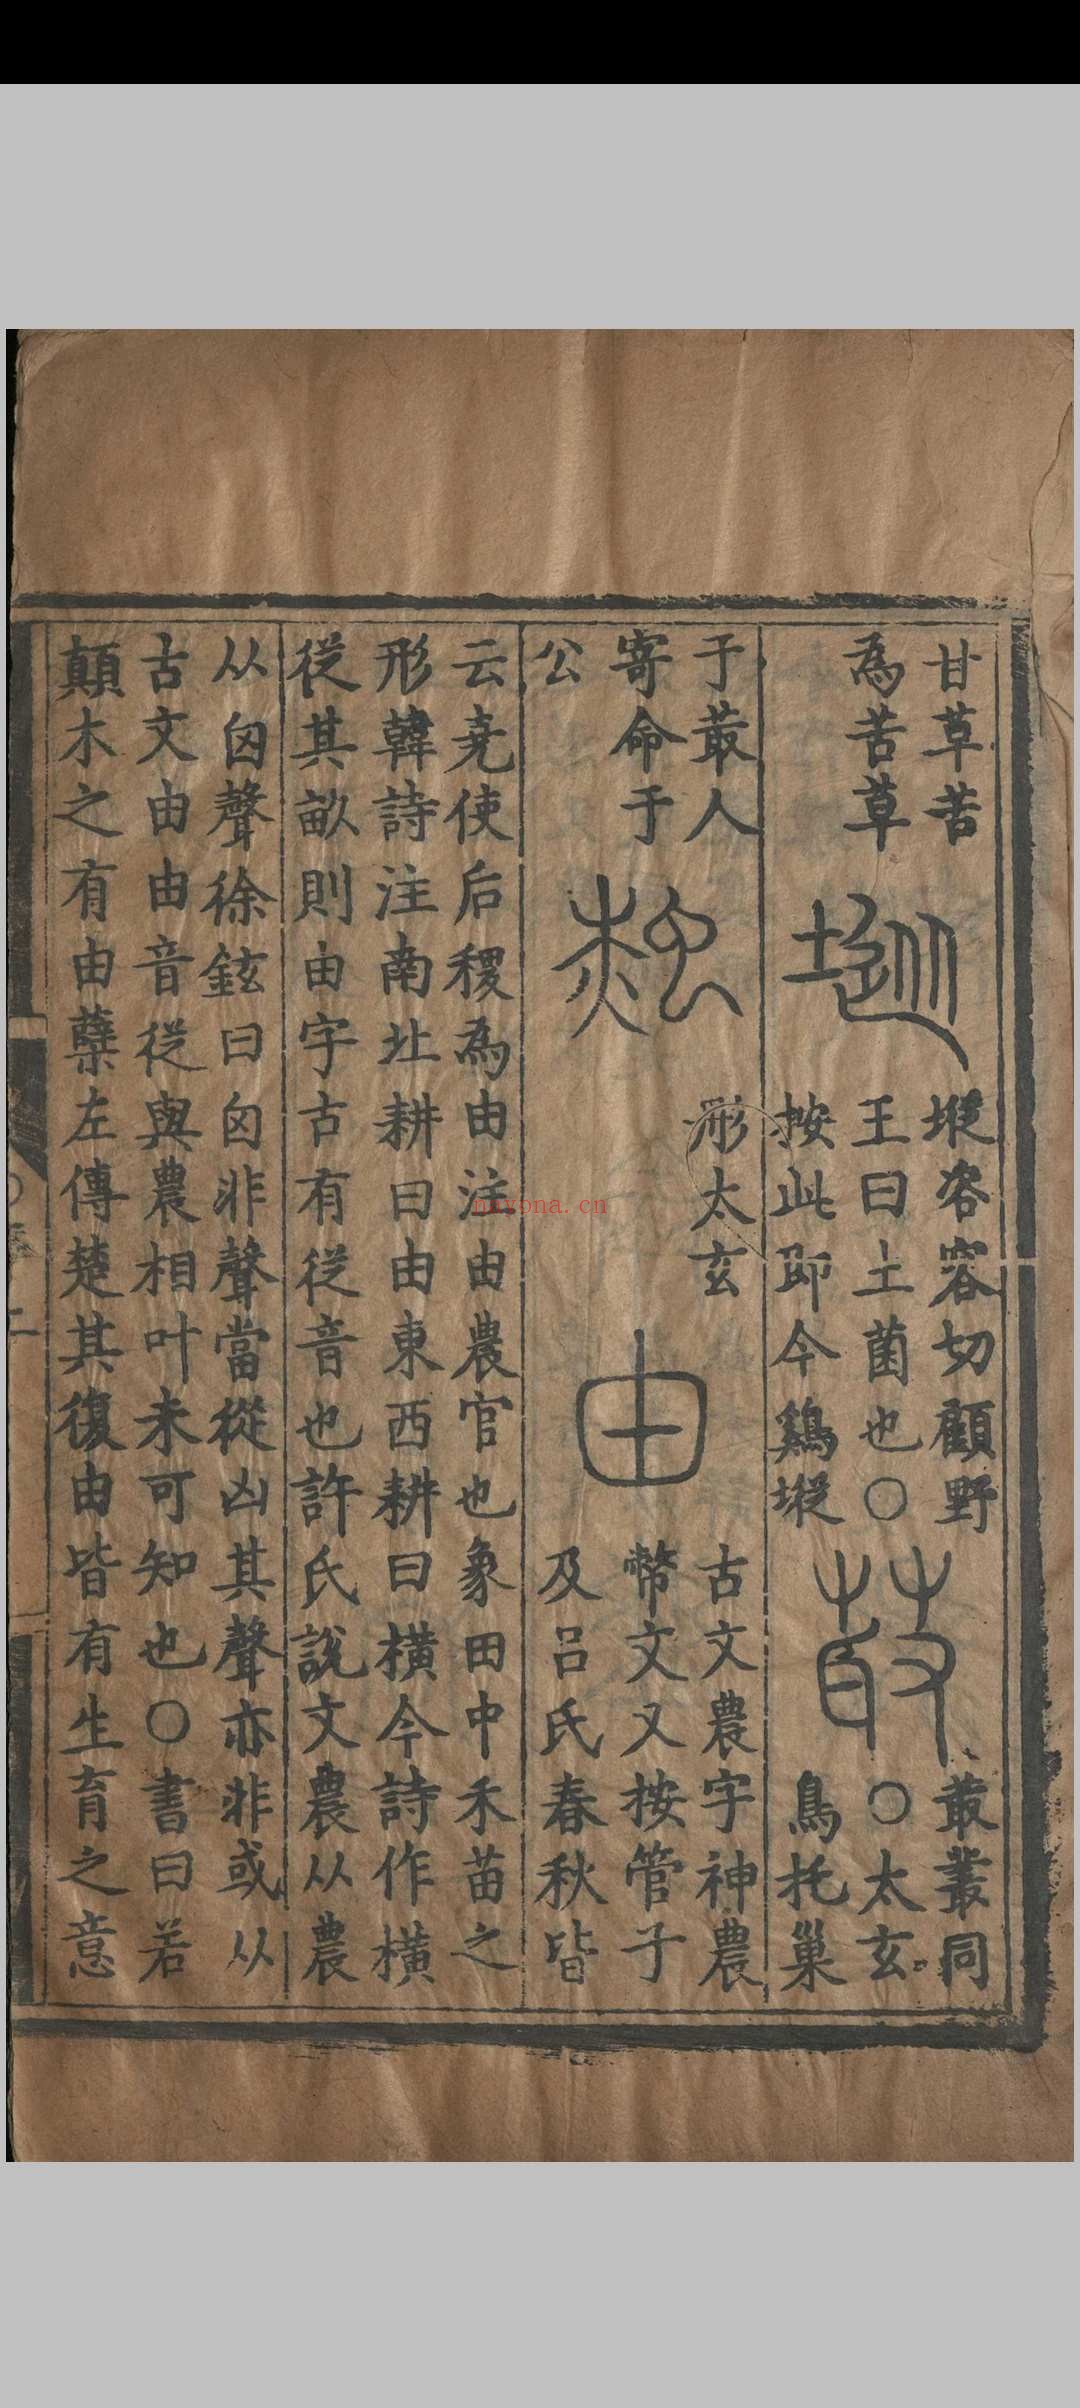 甘草苦
為苦草
㙡咨容切顧野
王曰土菌也〇
按此即今鷄㙡
菆叢同
〇太玄
鳥托巢
于菆人
寄命于
公
形太玄
古文農字神農
幣文又按管子
及呂氏春秋皆
云堯使后稷為由注由農官也象田中禾苗之
形韓詩注南北耕曰由東西耕曰橫今詩作橫
從其畝則由字古有從音也許氏說文農从農
从囟聲徐鉉曰囟非聲當從凶其聲亦非或从
古文由由音從與農相叶未可知也〇書曰若
顛木之有由蘗左傳楚其復由皆有生育之意
nayona.cn